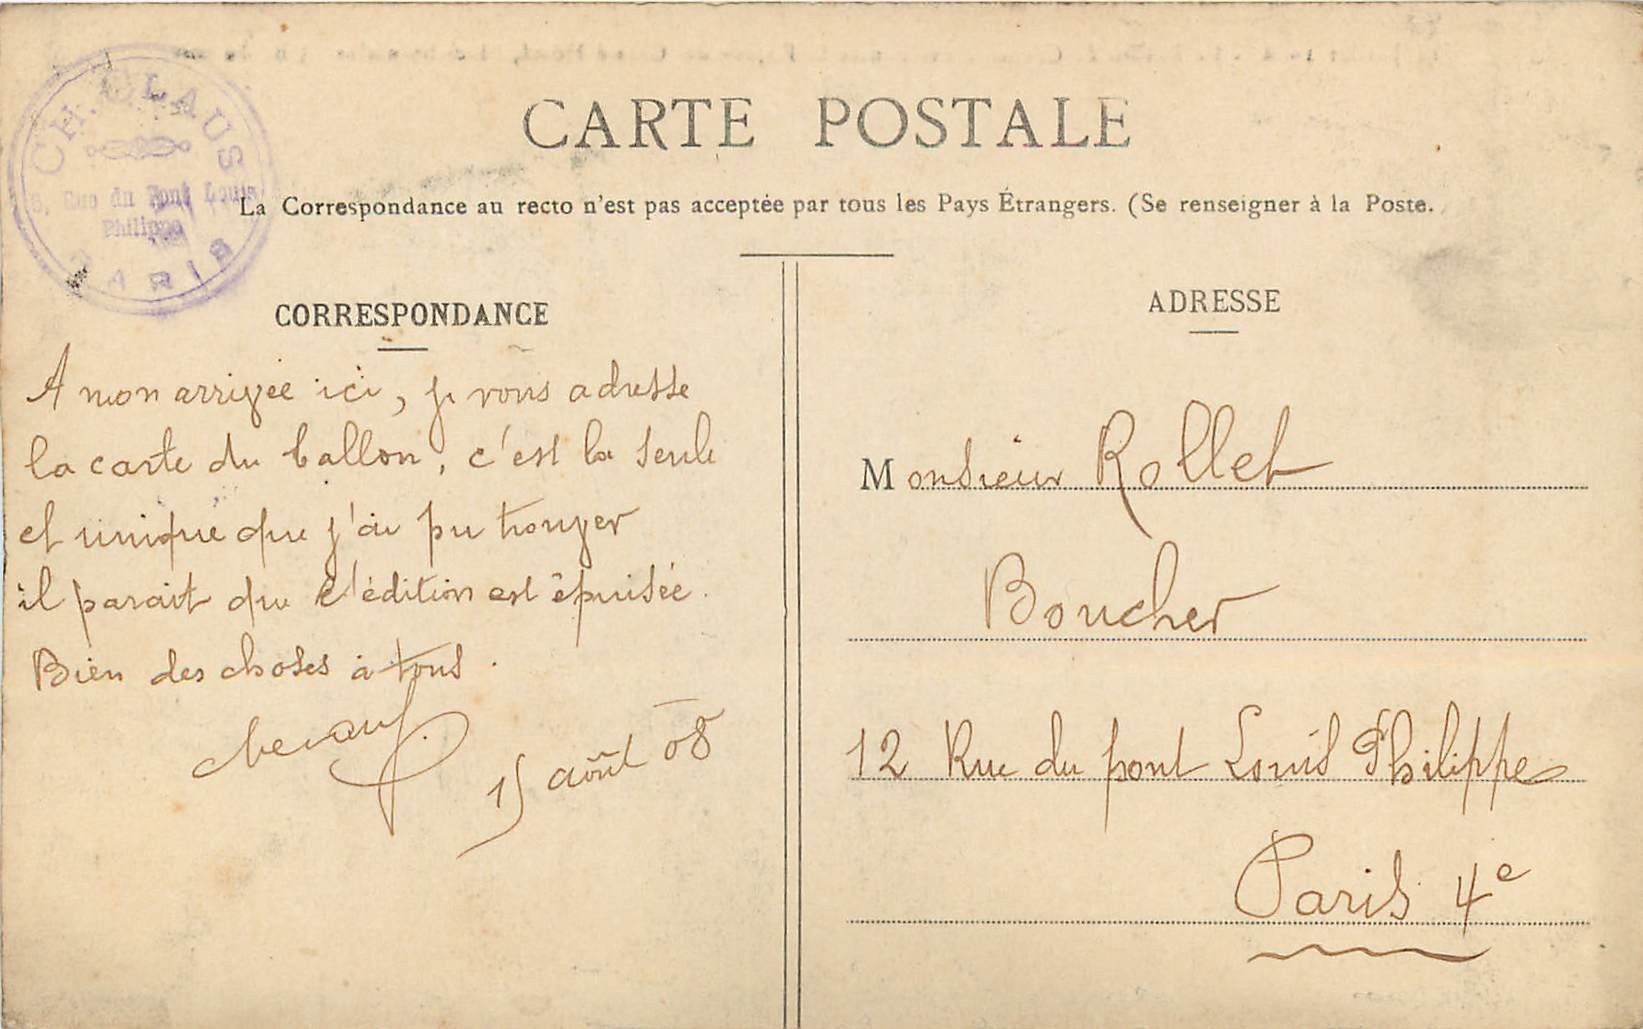 CH. CLAUS
Rue du Pont Louis
Philippe
PARIS
CARTE POSTALE
La Correspondance au recto n'est pas acceptée par tous les Pays Étrangers. (Se renseigner à la Poste.
CORRESPONDANCE
A mon arrivée ici, je vous adresse
la carte du ballon, c'est la seule
et unique que j'ai pu trouver
il parait que l'édition est épuisée.
Bien des choses à tous.
15 août 08
ADRESSE
Monsieur Rollet
Boucher
12 Rue du pont Louis Philippe
Paris 4e